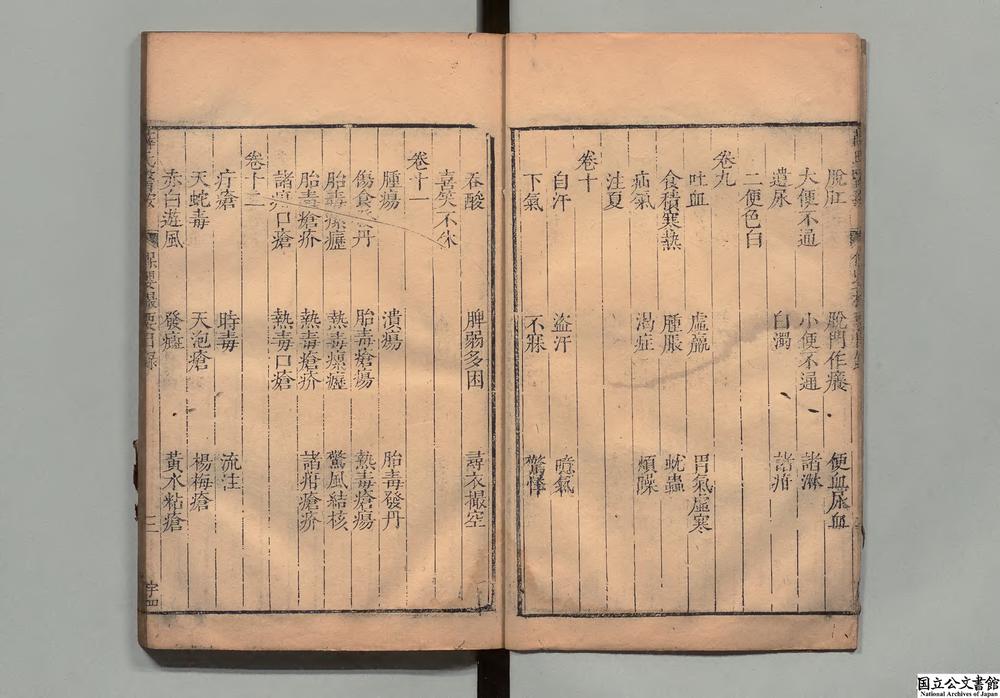 脫肛 脫門作癢 便血尿血
大便不通 小便不通 諸淋
遺尿 白濁 諸疳
二便色白
卷九
吐血 虛羸 胃氣虛寒
食積寒熱 腫脹 蚘蟲
疝氣 渴症 煩躁
注夏
卷十
自汗 盜汗 噫氣
下氣 不寐 驚悸
吞酸 脾弱多困 尋衣撮空
喜笑不休
卷十一
腫瘍 潰瘍 胎毒發丹
傷食發丹 胎毒瘡瘍 熱毒瘡瘍
胎毒瘰癧 熱毒瘰癧 驚風結核
胎毒瘡疥 熱毒瘡疥 諸疳瘡疥
諸疳口瘡 熱毒口瘡
卷十二
疔瘡 時毒 流注
天蛇毒 天泡瘡 楊梅瘡
赤白遊風 發癍 黃水粘瘡
保嬰撮要目錄 字四
国立公文書館
National Archives of Japan